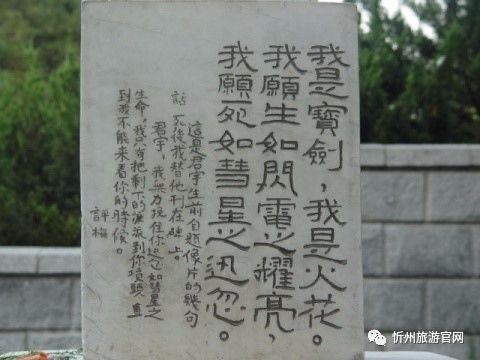 我是寶劍，我是火花。
我願生如閃電之耀亮，
我願死如彗星之迅忽。
這是君宇生前自題像片的幾句
話，死後我替他刊在碑上。
君宇，我無力挽住你迅忽如彗星之
生命，我只有把剩下的淚流到你墳頭，直
到我不能來看你的時候。
評梅
忻州旅游官网